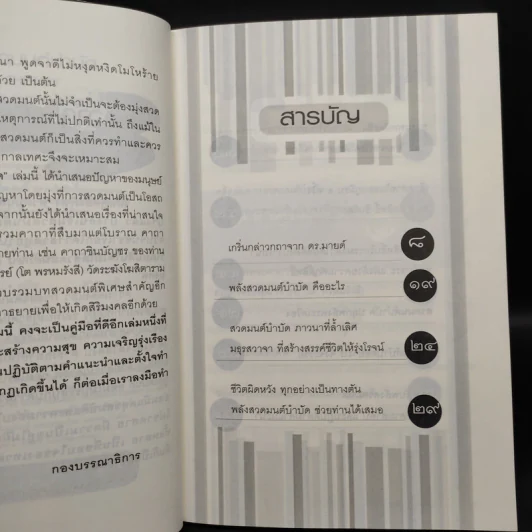 พูดจาดีไม่หงุดหงิดโมโหร้าย
เป็นต้น
สวดมนต์นั้นไม่จำเป็นจะต้องมุ่งสวด
เหตุการณ์ที่ไม่ปกติเท่านั้น ถึงแม้ใน
สวดมนต์ก็เป็นสิ่งที่ควรทำและควร
กาลเทศะจึงจะเหมาะสม
เล่มนี้ ได้นำเสนอปัญหาของมนุษย์
โดยมุ่งที่การสวดมนต์เป็นโอสถ
จากนั้นยังได้นำเสนอเรื่องที่น่าสนใจ
คาถาที่สืบมาแต่โบราณ คาถา
เช่น คาถาชินบัญชร ของท่าน
(โต พรหมรังสี) วัดระฆังโฆสิตาราม
รวบรวมบทสวดมนต์พิเศษสำคัญอีก
สาธยายเพื่อให้เกิดสิริมงคลอีกด้วย
นี้ คงจะเป็นคู่มือที่ดีอีกเล่มหนึ่งที่
สร้างความสุข ความเจริญรุ่งเรือง
ปฏิบัติตามคำแนะนำและตั้งใจทำ
เกิดขึ้นได้ ก็ต่อเมื่อเราลงมือทำ
กองบรรณาธิการ
สารบัญ
เกริ่นกล่าวกถาจาก ดร.มายด์ ๘
พลังสวดมนต์บำบัด คืออะไร ๑๙
สวดมนต์บำบัด ภาวนาที่ล้ำเลิศ
มธุรสวาจา ที่สร้างสรรค์ชีวิตให้รุ่งโรจน์ ๒๔
ชีวิตผิดหวัง ทุกอย่างเป็นทางตัน
พลังสวดมนต์บำบัด ช่วยท่านได้เสมอ ๒๙